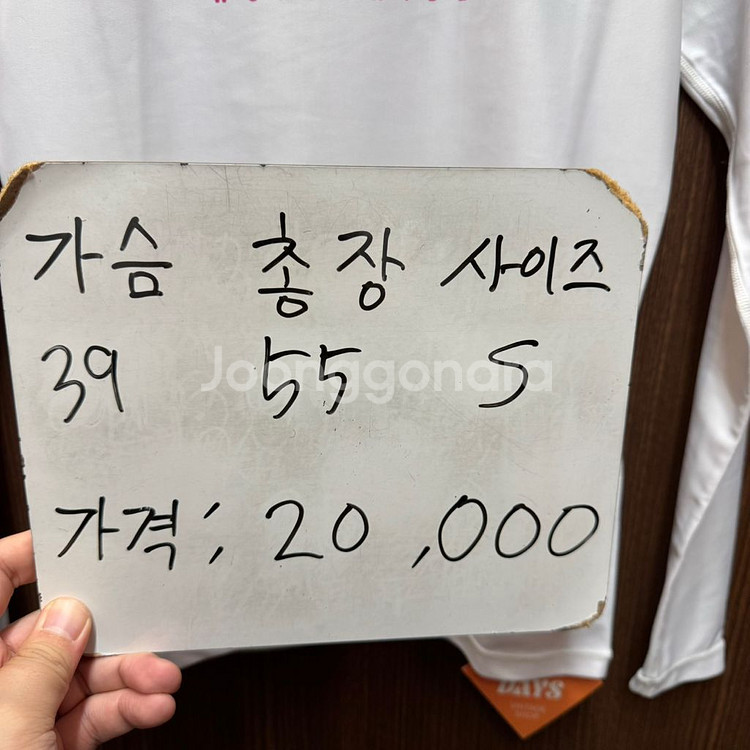 가슴 총장 사이즈
39 55 S
Joonggonara
가격; 20,000
DAYS